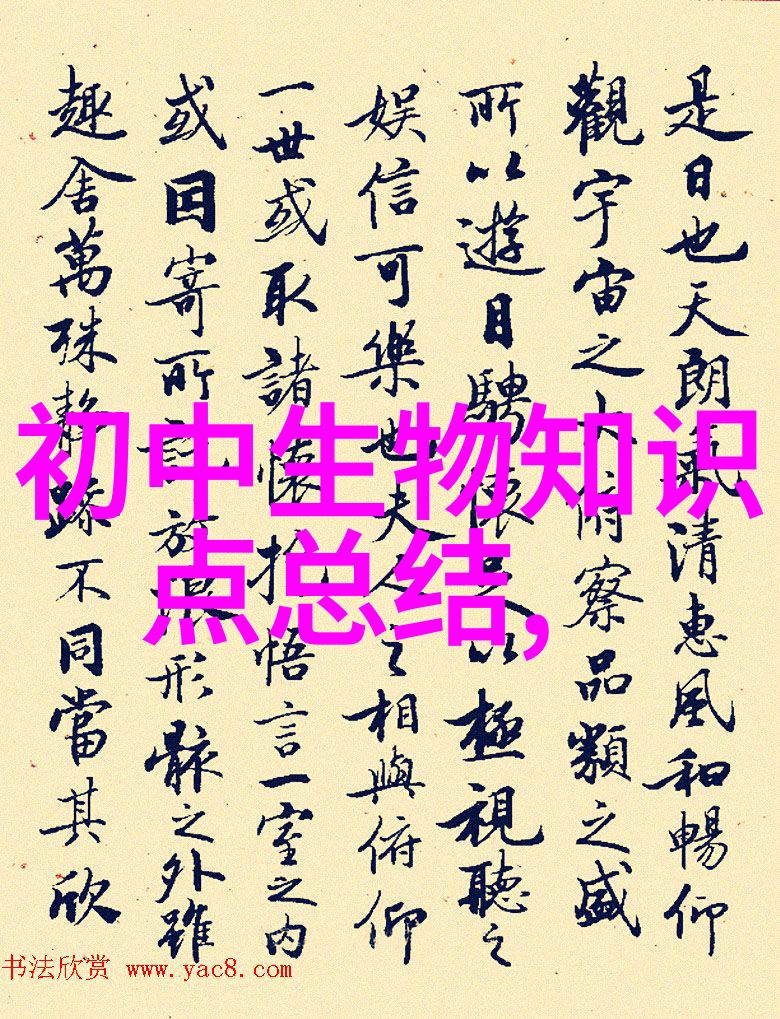 是日也天朗氣清惠風和暢仰
觀宇宙之大俯察品類之盛
所以遊目騁懷足以極視聽之
娱信可樂也夫人之相與俯仰
一世或取諸懷抱悟言一室之内
或因寄所託放浪形骸之外雖
趣舍萬殊静躁不同當其欣
初中生物知识
点总结,
书法欣赏 www.yac8.com